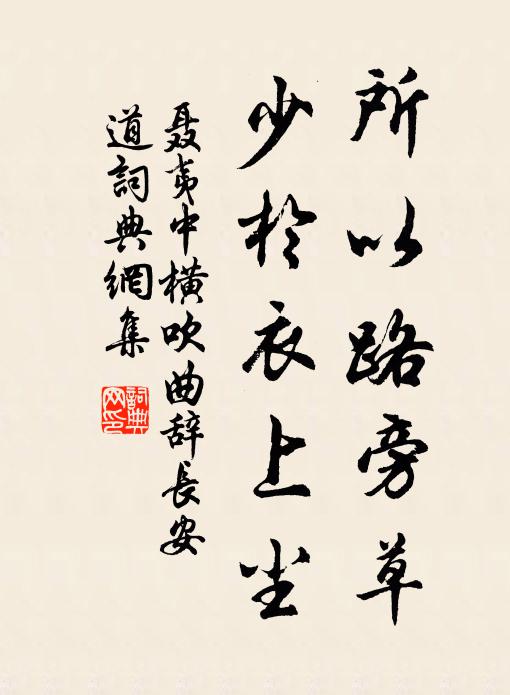 所以路旁草
少於衣上尘
聂夷中橫吹曲辞長安
道詞典網集
詞典
网印